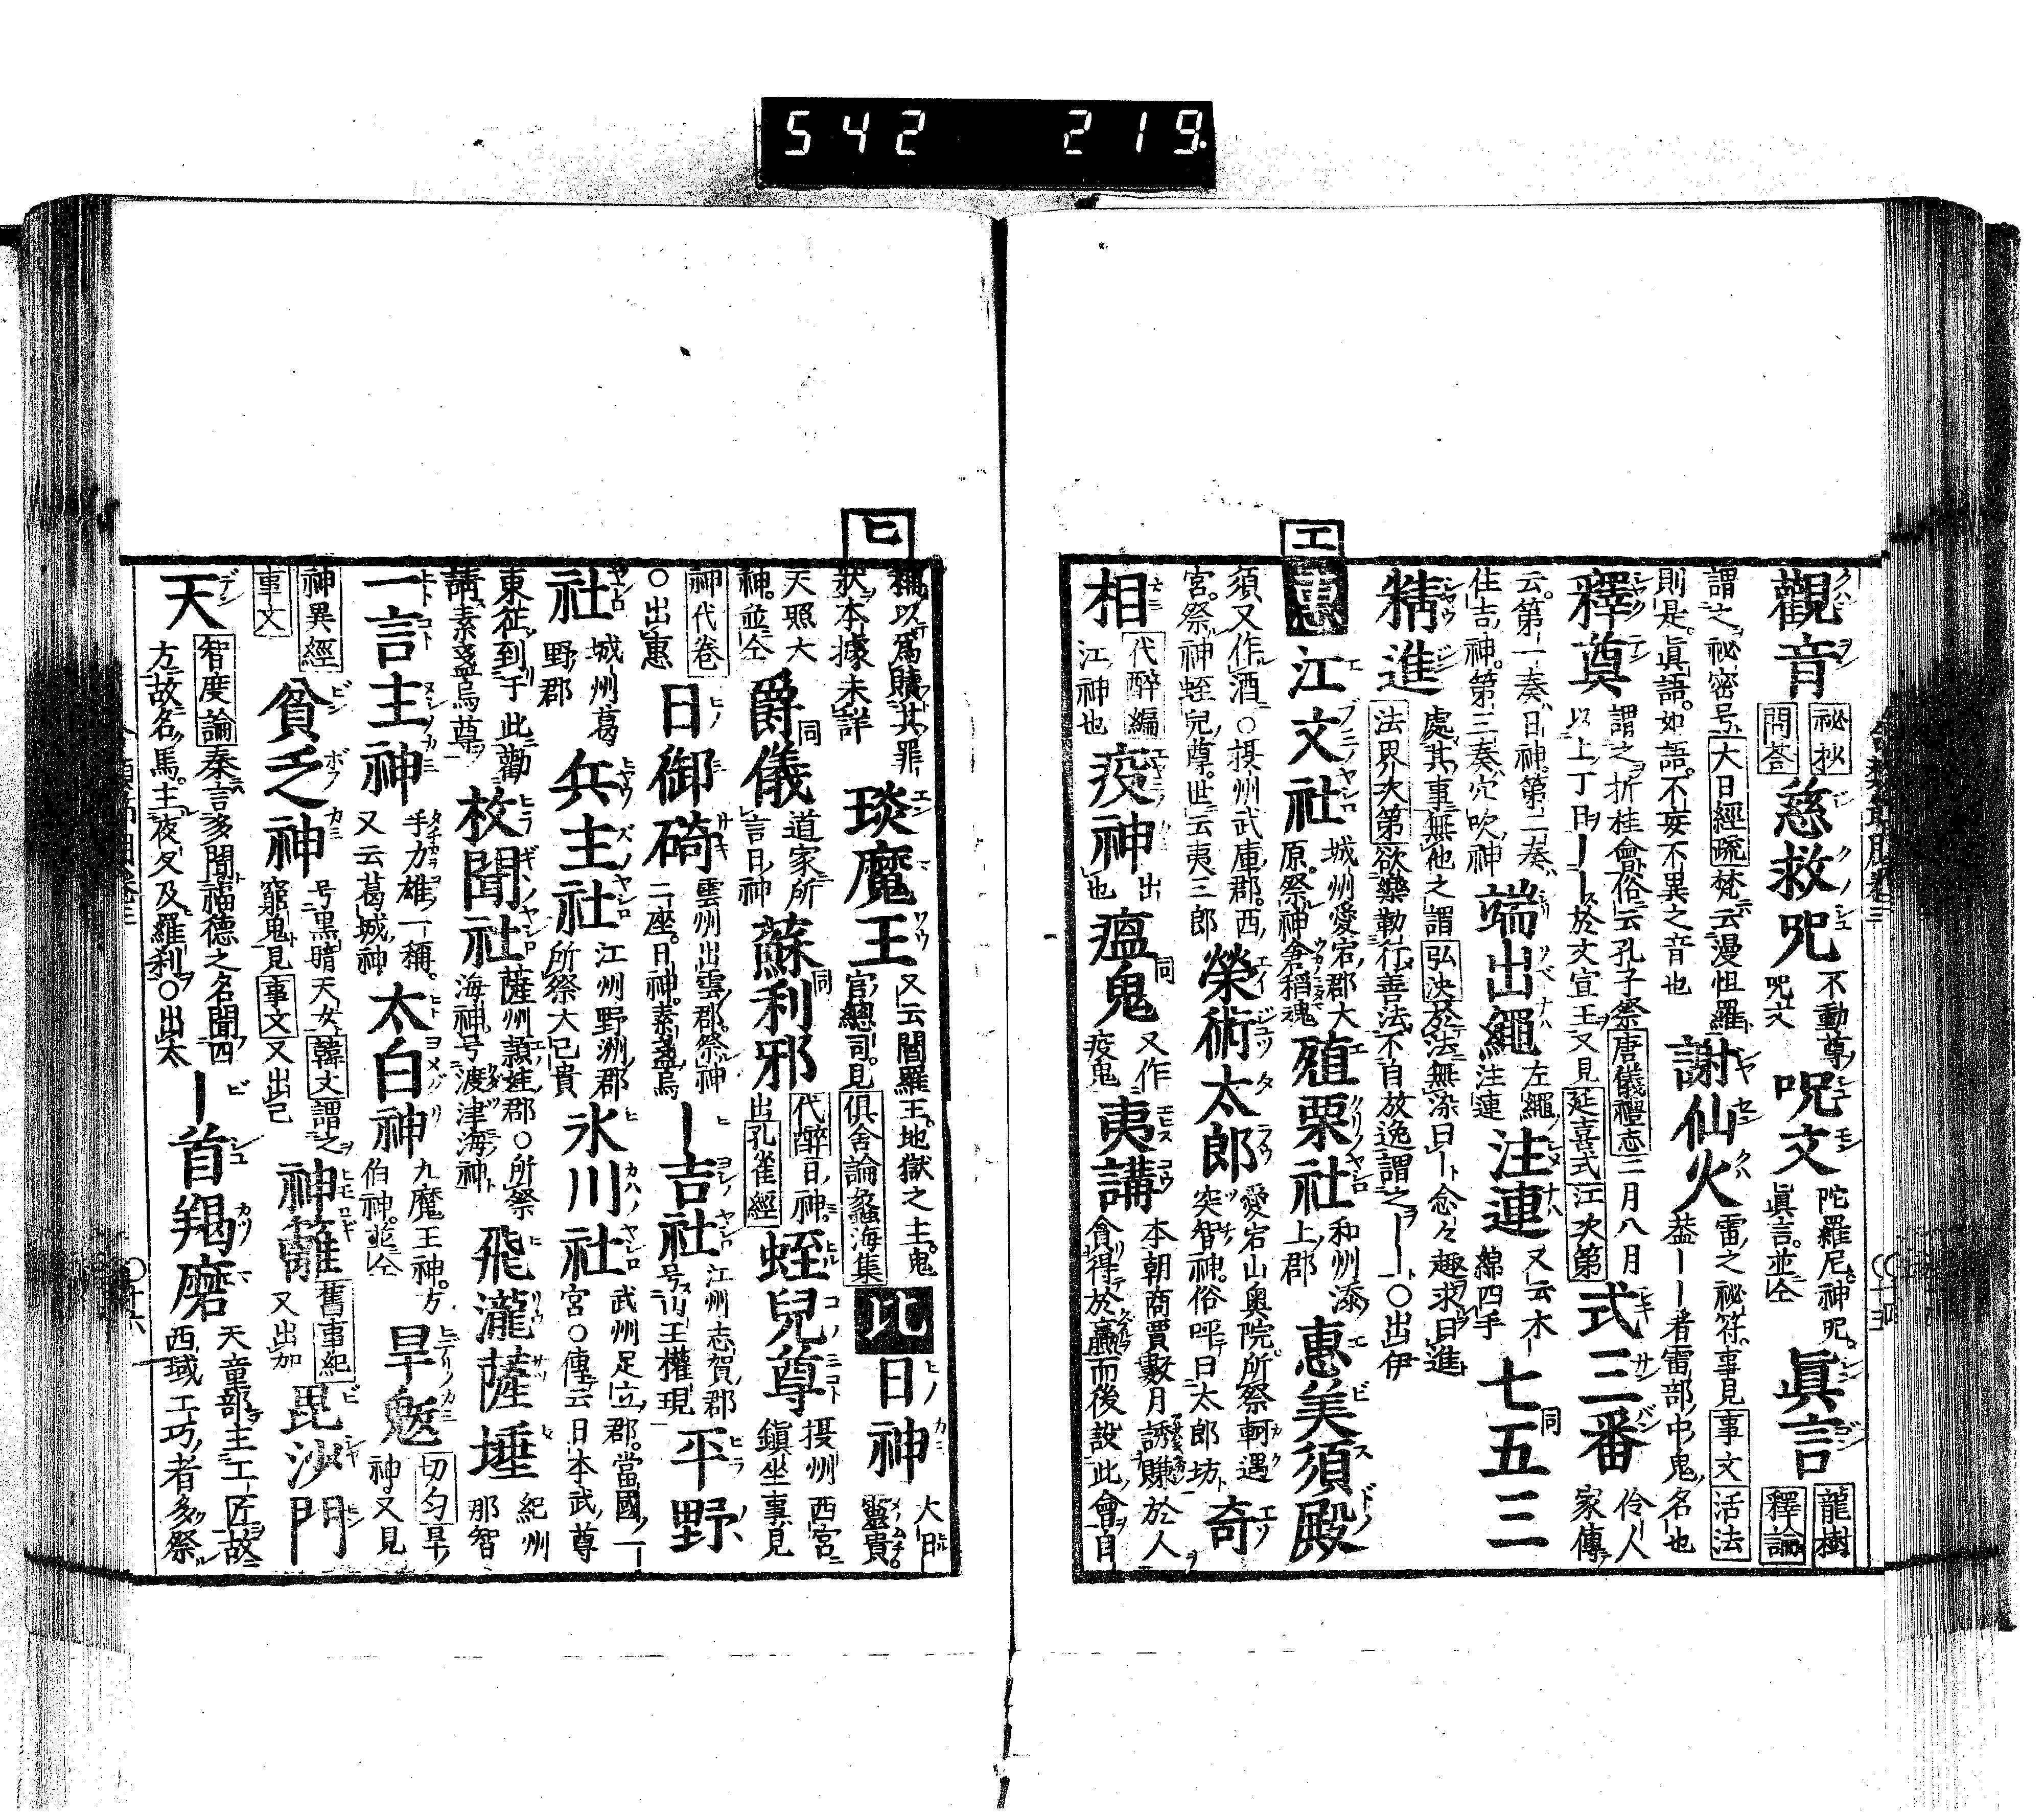 542 219
觀音 祕抄問荅 慈救呪 不動尊呪文 呪文 陀羅尼神呪眞言並仝 眞言 龍樹釋論
謂之祕密号 大日經疏 梵云漫怛羅則是眞語如語不妄不異之音也 謝仙火 雷之祕符事見 事文 活法 者雷部中鬼名也
釋奠 謂之折桂會俗云孔子祭 唐儀禮志 二月八月以上丁日 於文宣王又見 延喜式 江次第 式三番 伶人家傳
云第一奏日神第二奏住吉神第三奏穴吹神 端出繩 左繩注連 注連 又云木綿四手 七五三 同
精進 處其事無他之謂 弘決 於法無染曰 念々趣求曰進 法界次第 欲樂勤行善法不自放逸謂之 ○出伊
エ 惠 江文社 城州愛宕郡大原祭神倉稻魂 殖栗社 和州添上郡 惠美須殿
須又作酒○摂州武庫郡西宮祭神蛭兒尊世云夷三郎 榮術太郎 愛宕山奧院所祭軻遇突智神俗呼曰太郎坊 奇
相 代醉編 江神也 疫神 出也 瘟鬼 同 又作疫鬼 夷講 本朝商賈數月誘賺於人貪得於贏而後設此會自
稱以爲贖其罪狀本據未詳 琰魔王 又云閻羅王地獄之主鬼官總司見 俱舍論 蠡海集
ヒ 比 日神 大日孁貴
天照大神並仝 爵儀 同 道家所言日神 蘇利邪 同 代醉 日神出 孔雀經 蛭兒尊 摂州西宮鎭坐事見
神代卷 ○出惠 日御碕 雲州出雲郡祭神二座日神素盞烏 吉社 江州志賀郡号山王權現 平野
社 城州葛野郡 兵主社 江州野洲郡所祭大己貴 氷川社 武州足立郡當國一宮○傳云日本武尊
東征到于此勸請素盞烏尊 枚聞社 薩州頴娃郡○所祭海神号渡津海神 飛瀧薩埵 紀州那智
一言主神 手力雄一稱又云葛城神 太白神 九魔王神方伯神並仝 旱魃 切匀 旱神又見
神異經 事文 貧乏神 号黒暗天女 韓文 謂之窮鬼見 事文 又出己 神籬 舊事紀 又出加 毘沙門
天 智度論 秦言多聞福德之名聞四方故名焉主夜叉及羅刹○出太 首羯磨 天童部主工匠故西域工巧者多祭